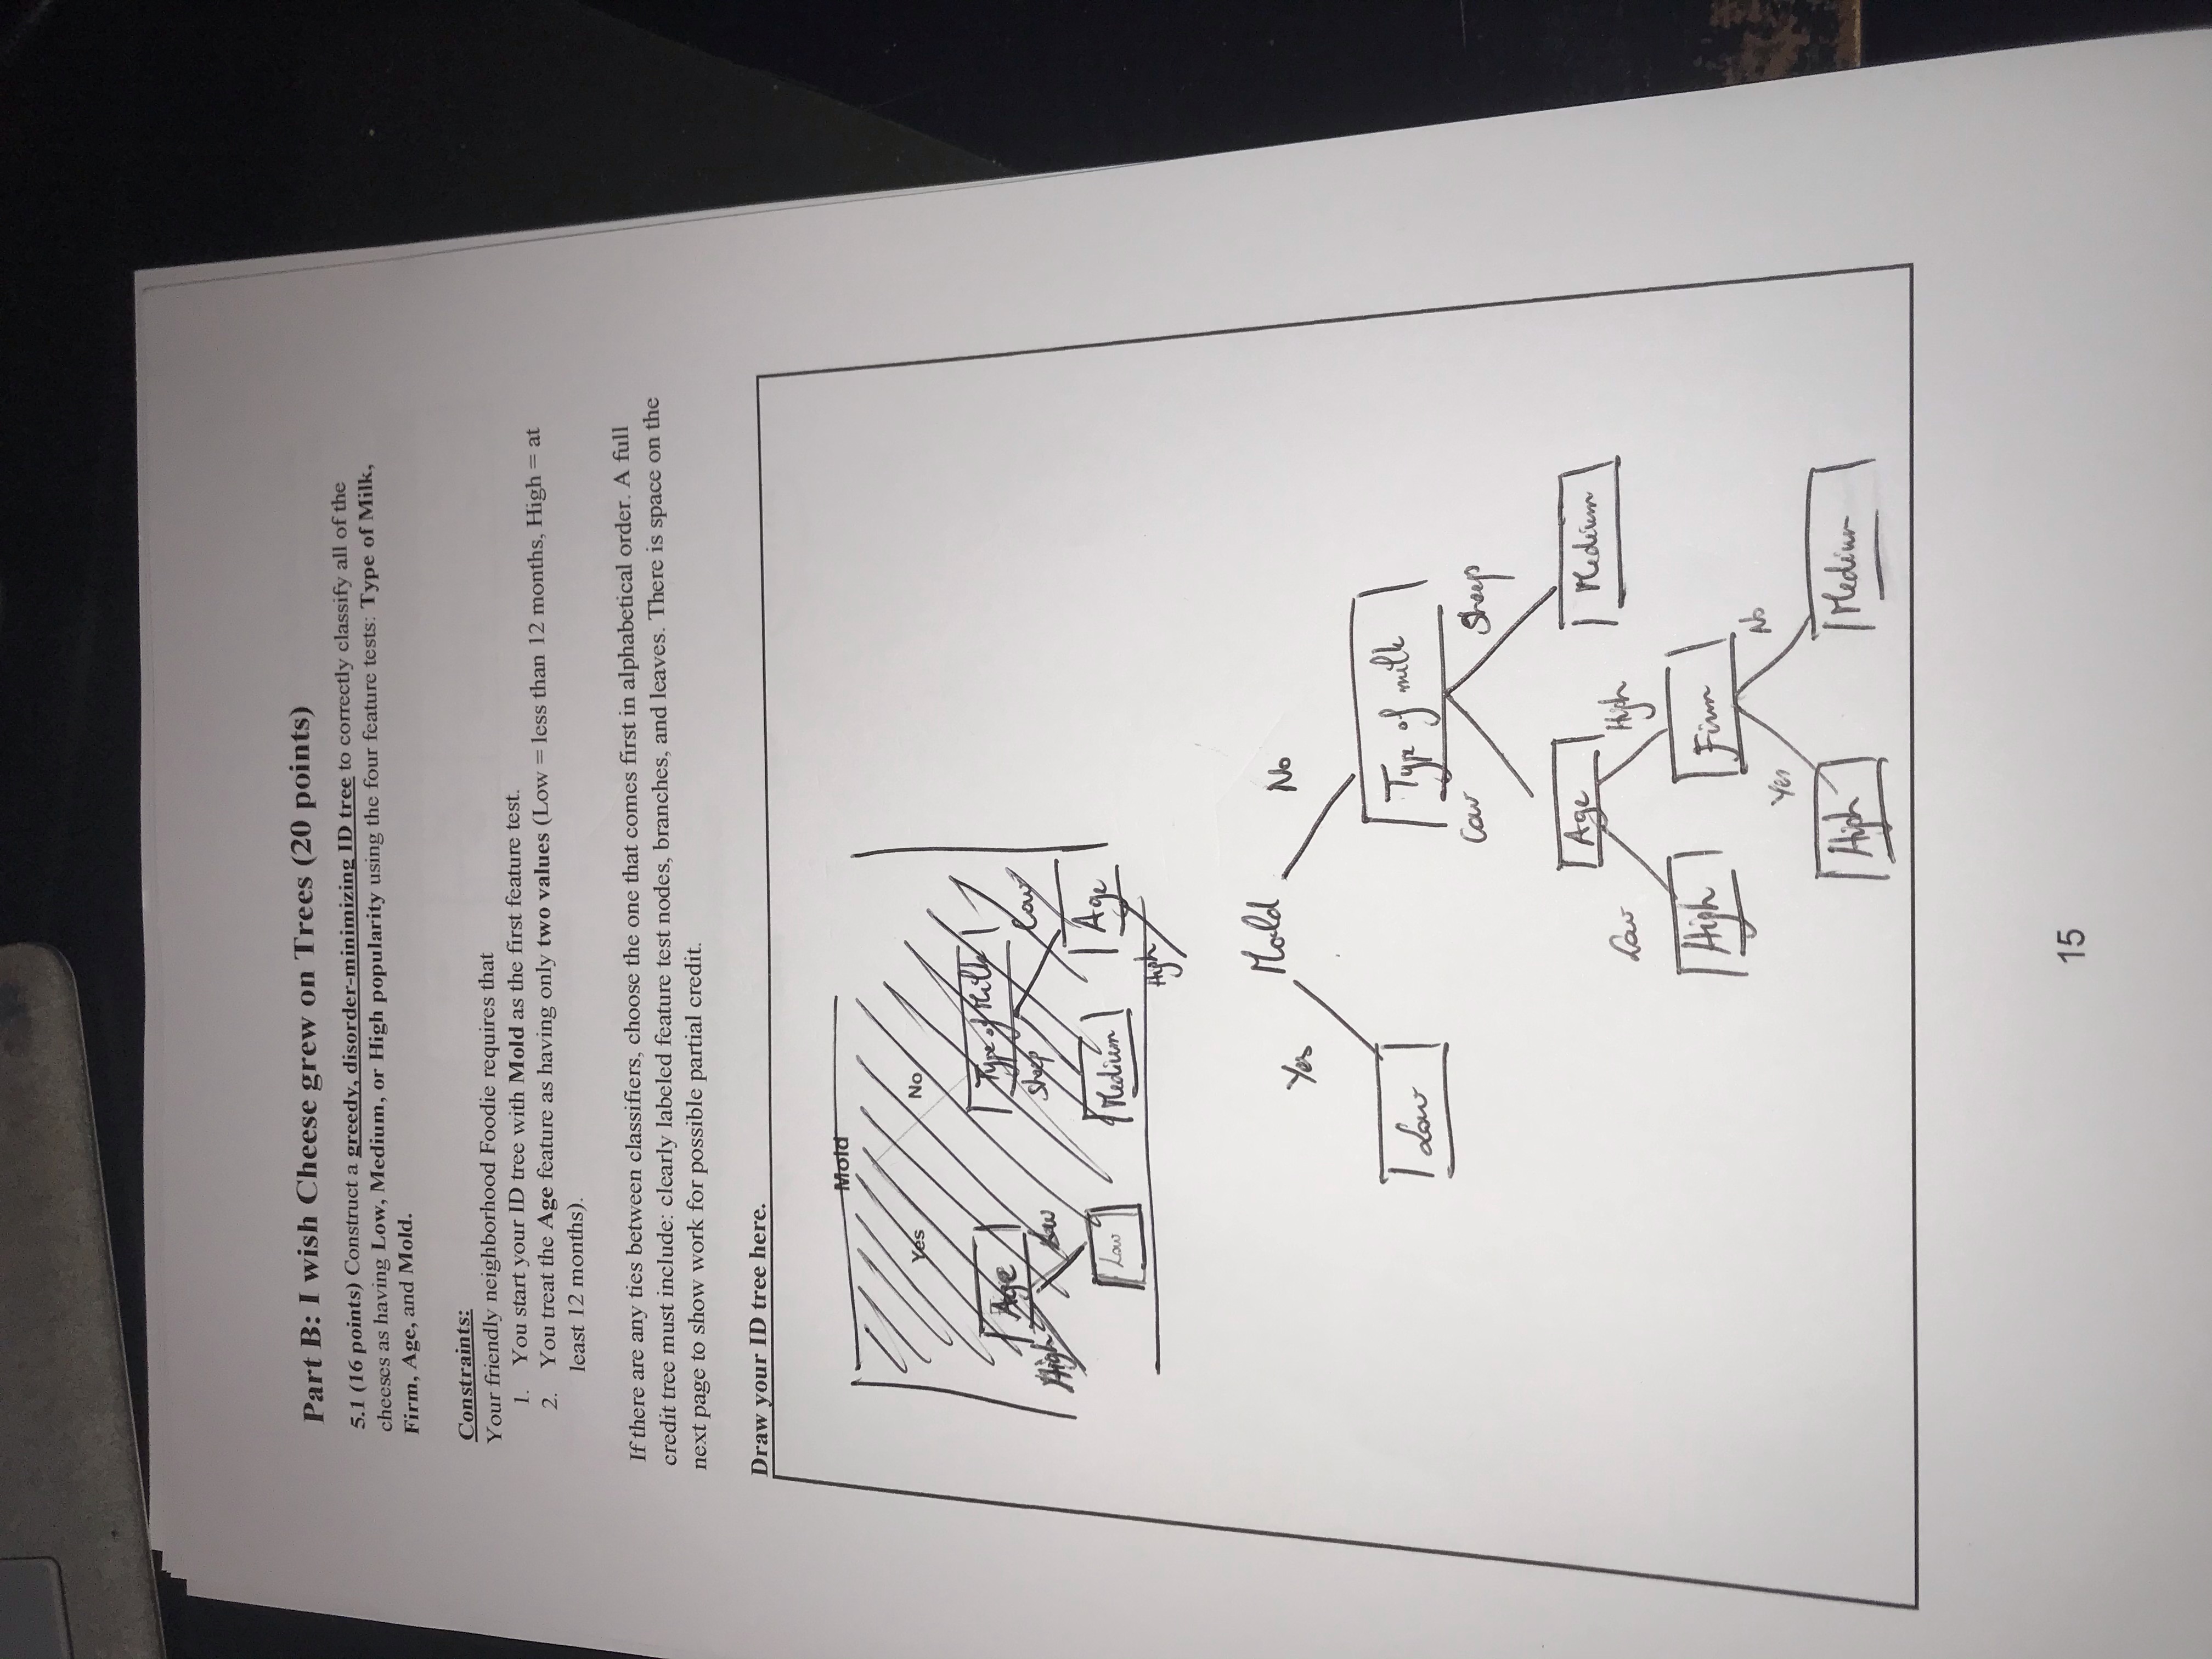 Part B: I wish Cheese grew on Trees (20 points)
5.1 (16 points) Construct a greedy, disorder-minimizing ID tree to correctly classify all of the
cheeses as having Low, Medium, or High popularity using the four feature tests: Type of Milk,
Firm, Age, and Mold.
Constraints:
Your friendly neighborhood Foodie requires that
1. You start your ID tree with Mold as the first feature test.
2. You treat the Age feature as having only two values (Low = less than 12 months, High = at
least 12 months).
If there are any ties between classifiers, choose the one that comes first in alphabetical order. A full
credit tree must include: clearly labeled feature test nodes, branches, and leaves. There is space on the
next page to show work for possible partial credit.
Draw your ID tree here.
Mold
Yes No
Age Type of Milk
High Low Sheep Cow
Low Medium Age
High
Mold
Yes No
Low Type of milk
Cow Sheep
Age Medium
Low High
High Firm
Yes No
High Medium
15